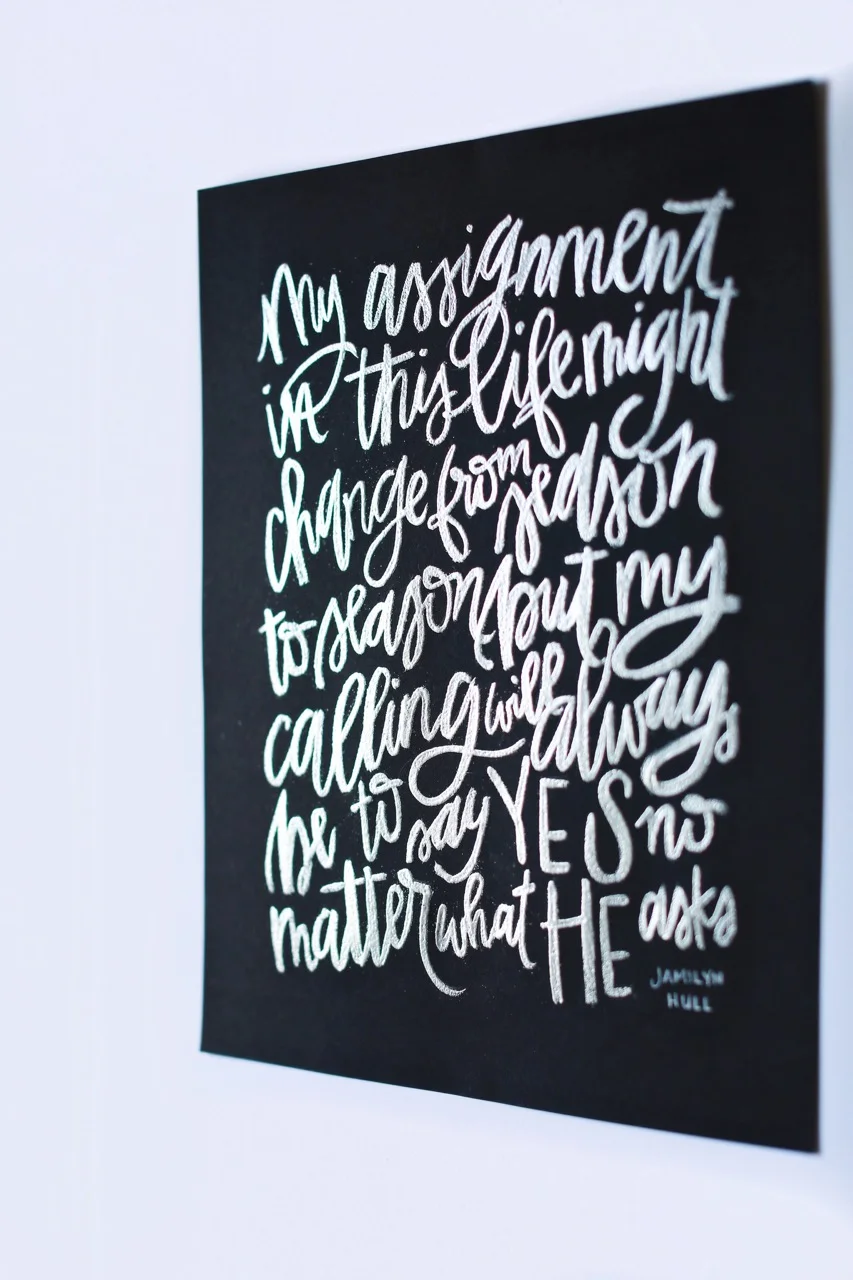 my assignment
in this life might
change from season
to season, but my
calling will always
be to say YES no
matter what HE asks
JAMILYN
HULL